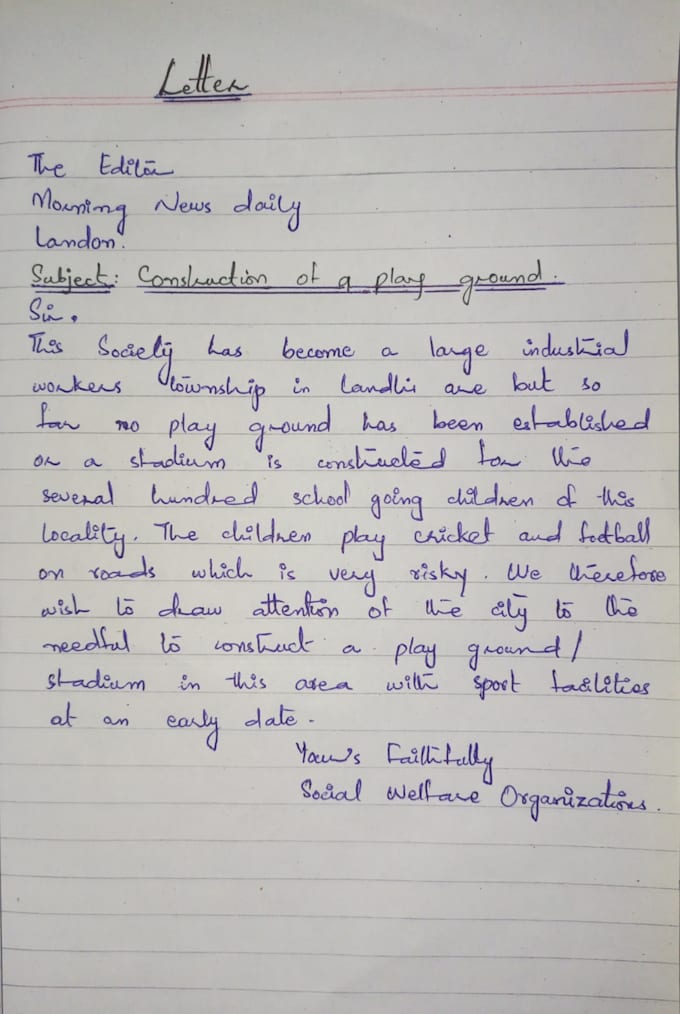 Letter
The Editor
Morning News daily
Landon.
Subject: Construction of a play ground.
Sir.
This Society has become a large industrial
workers township in Landhi are but so
far no play ground has been established
or a stadium is constructed for the
several hundred school going children of this
locality. The children play cricket and football
on roads which is very risky. We therefore
wish to draw attention of the city to the
needful to construct a play ground/
stadium in this area with sport facilities
at an early date.
Your's Faithfully
Social Welfare Organizations.